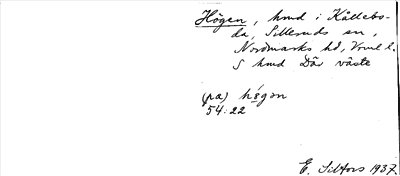 Högen, hmd i Källebo-
da, Silleruds sn,
Nordmarks hd, Vrml l.
S hmd Där väste
(pa) högən
54:22
E. Siltors 1937.